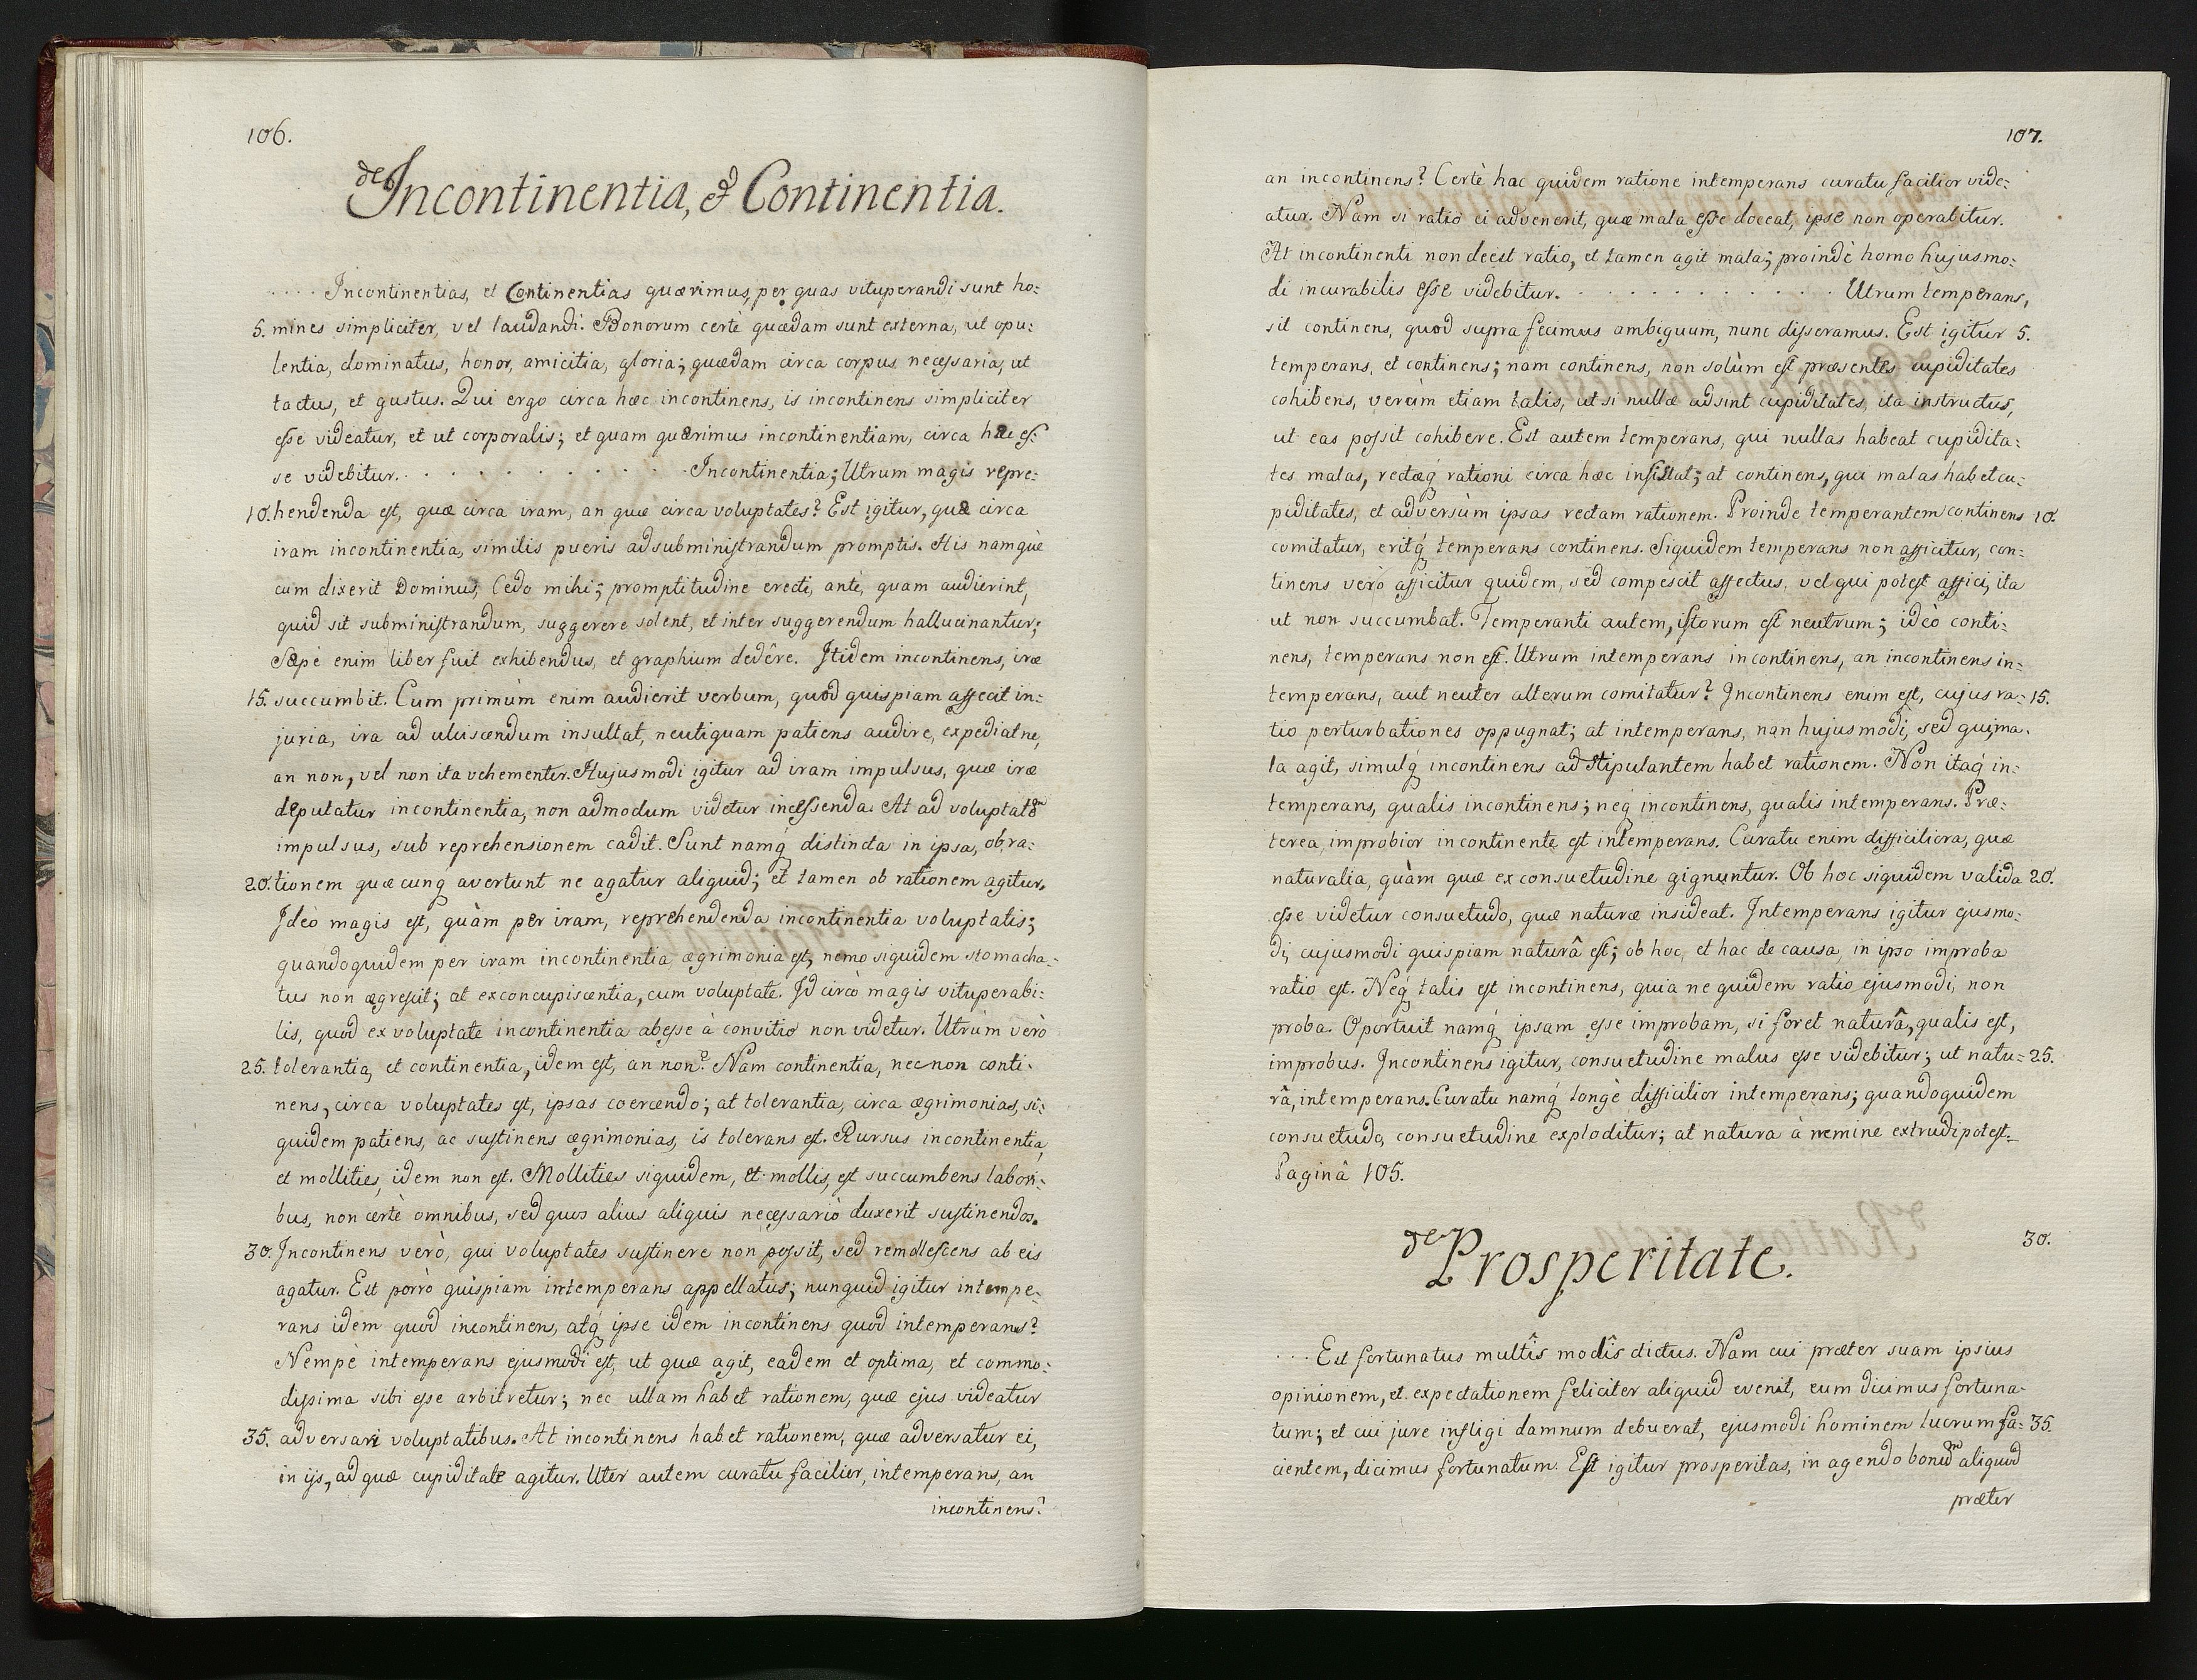 106.
de Incontinentia, & Continentia.
.... Incontinentias, et Continentias quærimus, per quas vituperandi sunt ho:
5. mines simpliciter, vel laudandi. Bonorum certè quædam sunt externa, ut opu:
lentia, dominatus, honor, amicitia, gloria; quædam circa corpus necessaria, ut
tactus, et gustus. Qui ergo circa hæc incontinens, is incontinens simpliciter
esse videatur, et ut corporalis; et quam quærimus incontinentiam, circa hæc es:
se videbitur. . . . . . . . . . . . . Incontinentia; Utrum magis repre:
10. hendenda est, quæ circa iram, an quæ circa voluptates? Est igitur, quæ circa
iram incontinentia, similis pueris ad subministrandum promptis. His namquè
cum dixerit Dominus, Cedo mihi; promptitudine erecti, antè, quam audierint,
quid sit subministrandum, suggerere solent, et inter suggerendum hallucinantur;
Sæpè enim liber fuit exhibendus, et graphium dedêre. Itidem incontinens, iræ
15. succumbit. Cum primùm enim audierit verbum, quòd quispiam affecit in:
juria, ira ad ulciscendum insultat, neutiquam patiens audire, expediatne,
an non, vel non ita vehementer. Hujusmodi igitur ad iram impulsus, quæ iræ
deputatur incontinentia, non admodum videtur incessenda. At ad voluptatẽ
impulsus, sub reprehensionem cadit. Sunt namq́ distincta in ipsa, ob ra:
20. tionem quæcunq́ avertunt ne agatur aliquid; et tamen ob rationem agitur.
Ideò magis est, quàm per iram, reprehendenda incontinentia voluptatis;
quandoquidem per iram incontinentia, ægrimonia est, nemo siquidem stomacha:
tus non ægrescit; at ex concupiscentia, cum voluptate. Idcircò magis vituperabi:
lis, quòd ex voluptate incontinentia abesse à convitio non videtur. Utrùm verò
25. tolerantia, et continentia, idem est, an non? Nam continentia, nec non conti:
nens, circa voluptates est, ipsas coercendo; at tolerantia, circa ægrimonias, si:
quidem patiens, ac sustinens ægrimonias, is tolerans est. Rursus incontinentia,
et mollities, idem non est. Mollities siquidem, et mollis, est succumbens labori:
bus, non certè omnibus, sed quos alius aliquis necessariò duxerit sustinendos.
30. Incontinens verò, qui voluptates sustinere non possit, sed remollescens ab eis
agatur. Est porrò quispiam intemperans appellatus; nunquid igitur intempe:
rans idem quod incontinens, atq́ ipse idem incontinens quod intemperans?
Nempè intemperans ejusmodi est, ut quæ agit, eadem et optima, et commo:
dissima sibi esse arbitretur; nec ullam habet rationem, quæ ejus videatur
35. adversari voluptatibus. At incontinens habet rationem, quæ adversatur ei,
in ijs, ad quæ cupiditate agitur. Uter autem curatu facilior, intemperans, an
incontinens?
107.
an incontinens? Certè hac quidem ratione intemperans curatu facilior vide:
atur. Nam si ratio ei advenerit, quæ mala esse doceat, ipse non operabitur.
At incontinenti non deest ratio, et tamen agit mala; proindè homo hujusmo:
di incurabilis esse videbitur. . . . . . . . . . . . . Utrum temperans,
sit continens, quod supra fecimus ambiguum, nunc disseramus. Est igitur 5.
temperans, et continens; nam continens, non solùm est præsentes cupiditates
cohibens, verùm etiam talis, ut si nullæ adsint cupiditates, ita instructus,
ut eas possit cohibere. Est autem temperans, qui nullas habeat cupidita:
tes malas, rectæq́ rationi circa hæc insistat; at continens, qui malas habet cu:
piditates, et adversùm ipsas rectam rationem. Proinde temperantem continens 10.
comitatur, eritq́ temperans continens. Siquidem temperans non afficitur, con:
tinens verò afficitur quidem, sed compescit affectus, vel qui potest affici, ita
ut non succumbat. Temperanti autem, istorum est neutrum; ideò conti:
nens, temperans non est. Utrum intemperans incontinens, an incontinens in:
temperans, aut neuter alterum comitatur? Incontinens enim est, cujus ra: 15.
tio perturbationes oppugnat; at intemperans, non hujusmodi, sed qui, ma:
la agit, simulq́ incontinens adstipulantem habet rationem. Non itaq́ in:
temperans, qualis incontinens; neq́ incontinens, qualis intemperans. Præ:
terea, improbior incontinente est intemperans. Curatu enim difficiliora, quæ
naturalia, quàm quæ ex consuetudine gignuntur. Ob hoc siquidem valida 20.
esse videtur consuetudo, quæ naturæ insideat. Intemperans igitur ejusmo:
di, cujusmodi quispiam naturâ est; ob hoc, et hac de causa, in ipso improba
ratio est. Neq́ talis est incontinens, quia ne quidem ratio ejusmodi, non
proba. Oportuit namq́ ipsam esse improbam, si foret naturâ, qualis est,
improbus. Incontinens igitur, consuetudine malus esse videbitur; ut natu: 25.
râ, intemperans. Curatu namq́ longè difficilior intemperans; quandoquidem
consuetudo, consuetudine exploditur; at natura à nemine extrudi potest.
Paginâ 105.
de Prosperitate.
30.
.... Est fortunatus multîs modîs dictus. Nam cui præter suam ipsius
opinionem, et expectationem feliciter aliquid evenit, eum dicimus fortuna:
tum; et cui jure infligi damnum debuerat, ejusmodi hominem lucrum fa: 35.
cientem, dicimus fortunatum. Est igitur prosperitas, in agendo bonũ aliquod
præter